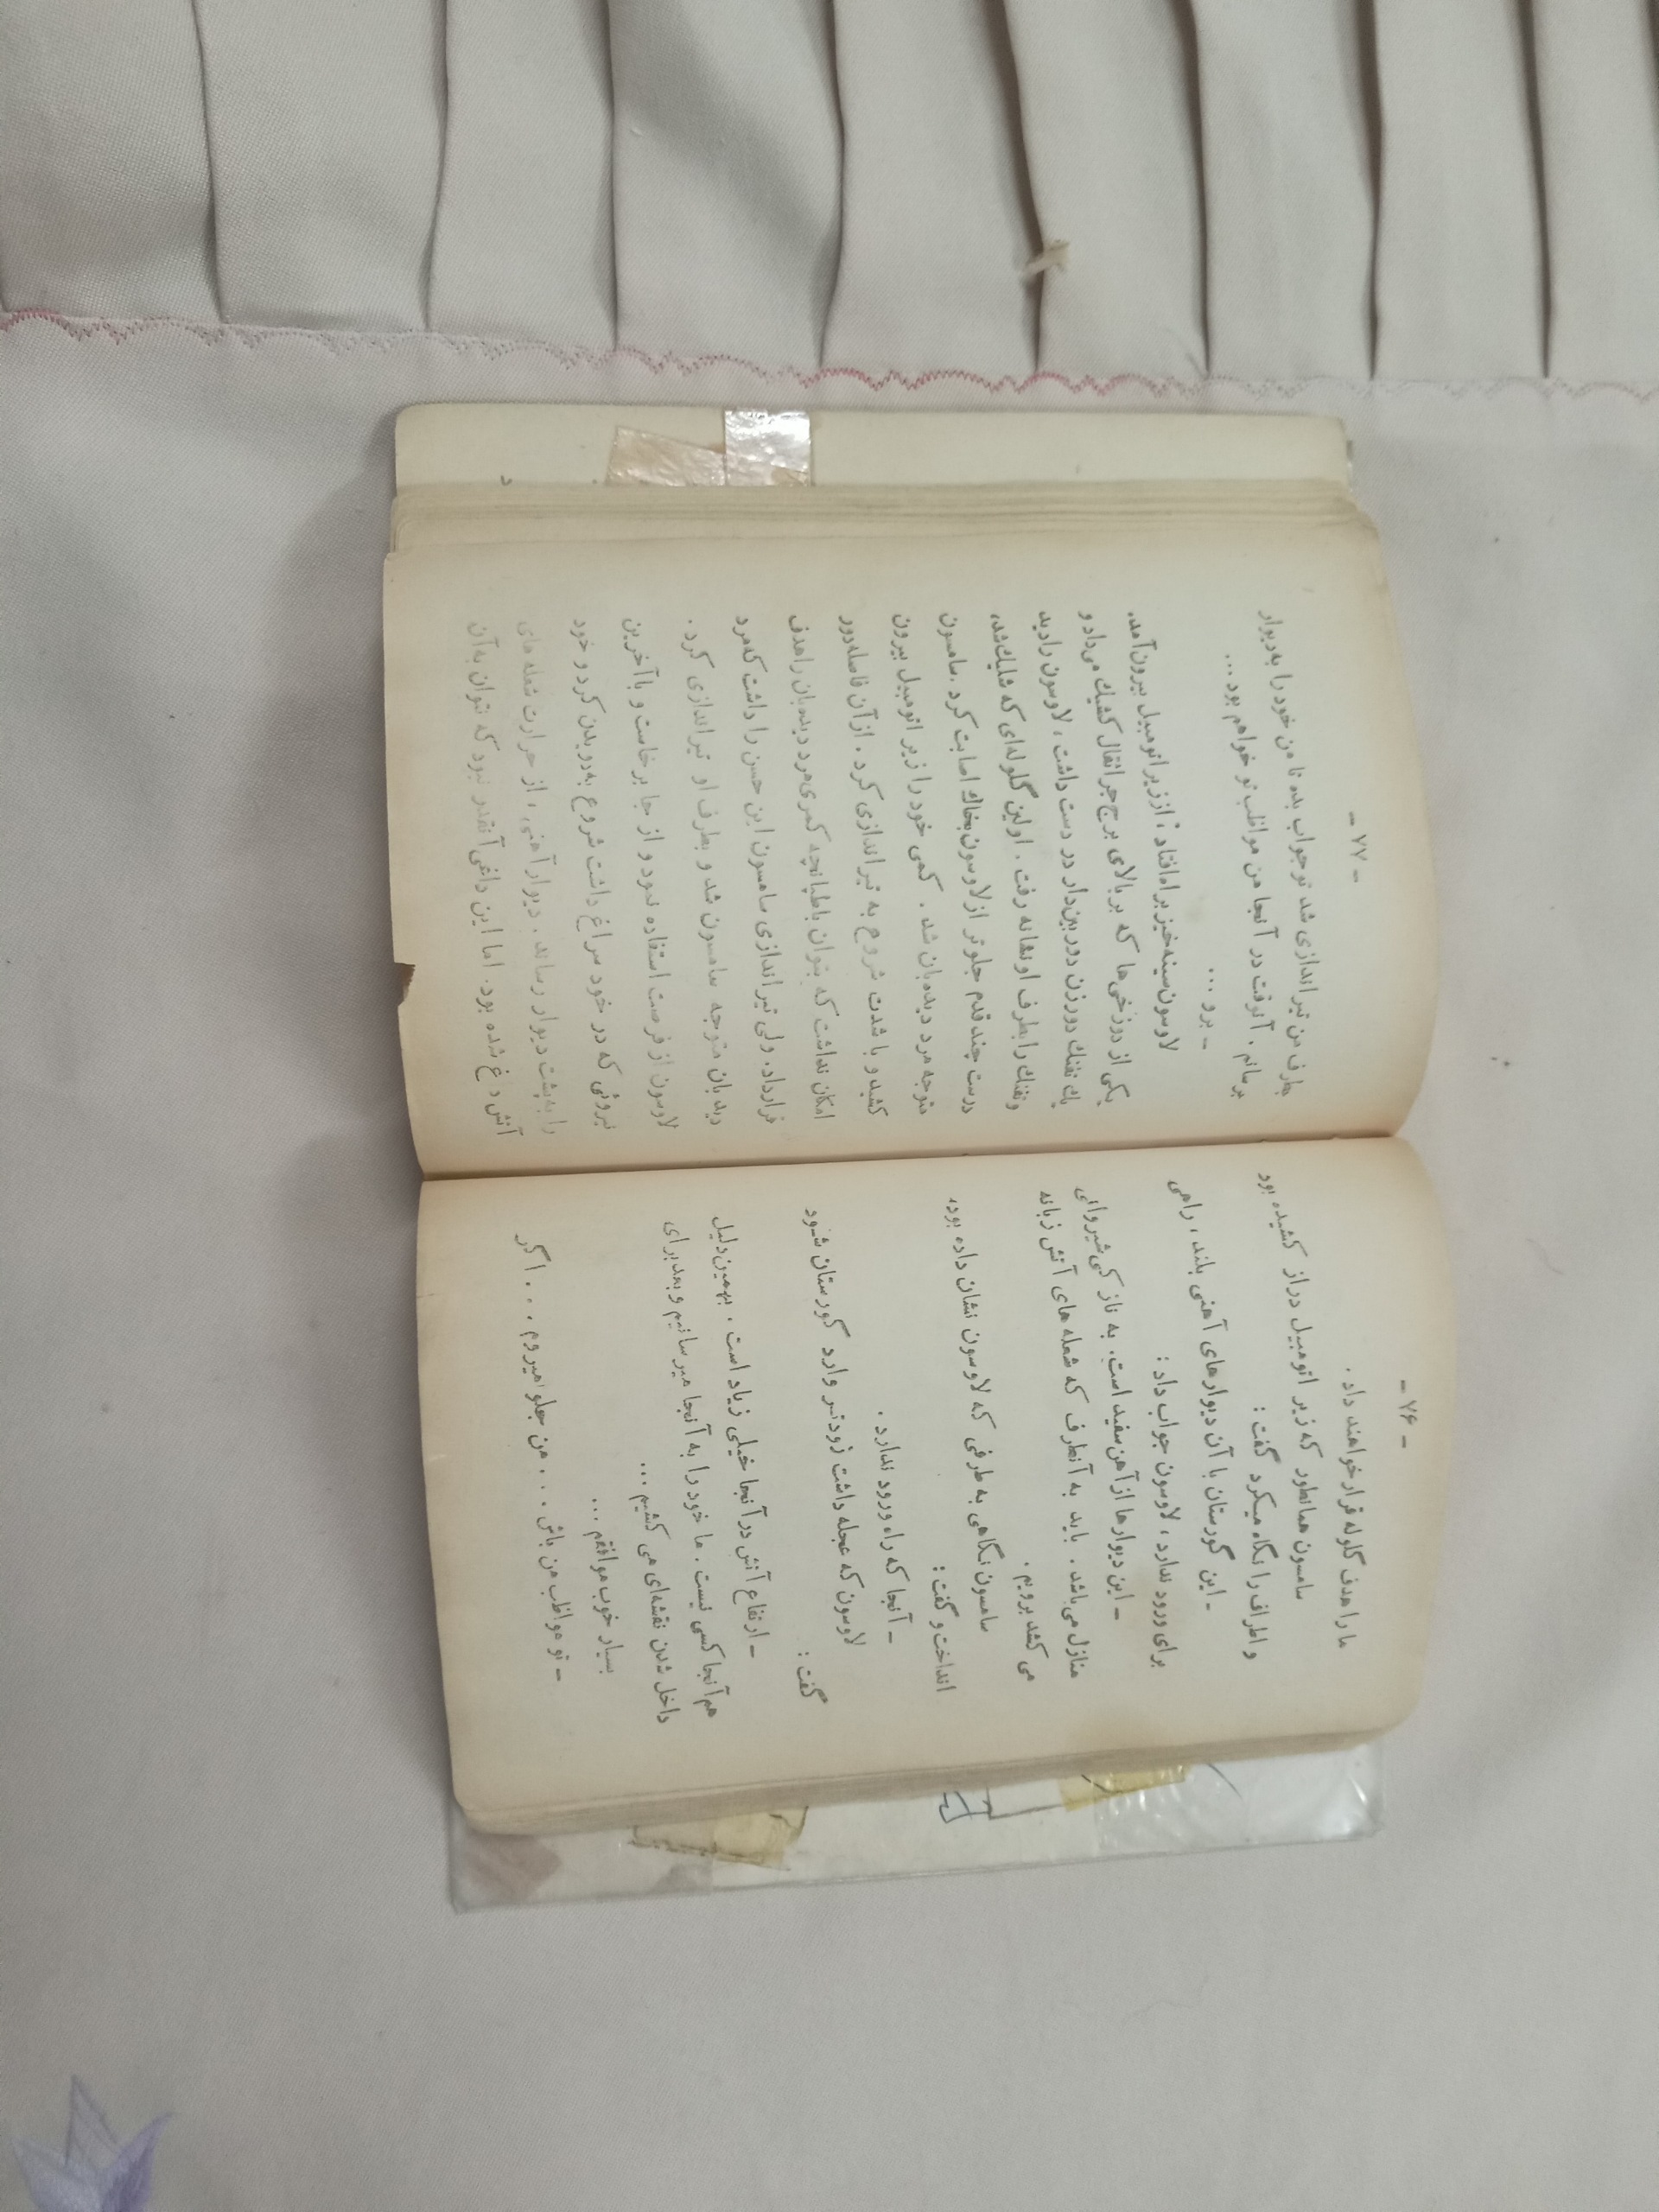 - ۷۶ -
ما را هدف گلوله قرار خواهند داد .
سامسون همانطور که زیر اتومبیل دراز کشیده بود
و اطراف را نگاه میکرد گفت :
- این گورستان با آن دیوارهای آهنی بلند ، راهی
برای ورود ندارد ، لاوسون جواب داد :
- این دیوارها از آهن سفید است. به نازکی شیروانی
منازل می‌باشد . باید به آنطرف که شعله های آتش زبانه
می کشد برویم .
سامسون نگاهی به طرفی که لاوسون نشان داده بود،
انداخت و گفت :
- آنجا که راه ورود ندارد .
لاوسون که عجله داشت زودتر وارد گورستان شود
گفت :
- ارتفاع آتش در آنجا خیلی زیاد است . بهمین دلیل
هم آنجا کسی نیست . ما خود را به آنجا میرسانیم و بعد برای
داخل شدن نقشه‌ای می کشیم ...
بسیار خوب موافقم ...
- تو مواظب من باش . . . من جلو میروم . . . اگر
- ۷۷ -
بطرف من تیراندازی شد تو جواب بده تا من خود را به دیوار
برسانم . آنوقت در آنجا من مواظب تو خواهم بود ...
- برو ...
لاوسون سینه خیز براه افتاد ، از زیر اتومبیل بیرون آمد،
یکی از دوزخی‌ها که بر بالای برج جراثقال کشیک می‌داد و
یك تفنگ دورزن دوربین‌دار در دست داشت ، لاوسون را دید
و تفنگ را بطرف او نشانه رفت . اولین گلوله‌ای که شلیك شد،
درست چند قدم جلوتر از لاوسون بخاك اصابت کرد . سامسون
متوجه مرد دیده‌بان شد . کمی خود را از زیر اتومبیل بیرون
کشید و با شدت شروع به تیراندازی کرد . از آن فاصله دور
امکان نداشت که بتوان با طپانچه کمری مرد دیده‌بان را هدف
قرار داد. ولی تیراندازی سامسون این حسن را داشت که مرد
دیده بان متوجه سامسون شد و بطرف او تیراندازی کرد .
لاوسون از فرصت استفاده نمود و از جا برخاست و با آخرین
نیروئی که در خود سراغ داشت شروع به دویدن کرد و خود
را به پشت دیوار رساند . دیوار آهنی ، از حرارت شعله های
آتش داغ شده بود. اما این داغی آنقدر نبود که نتوان به آن